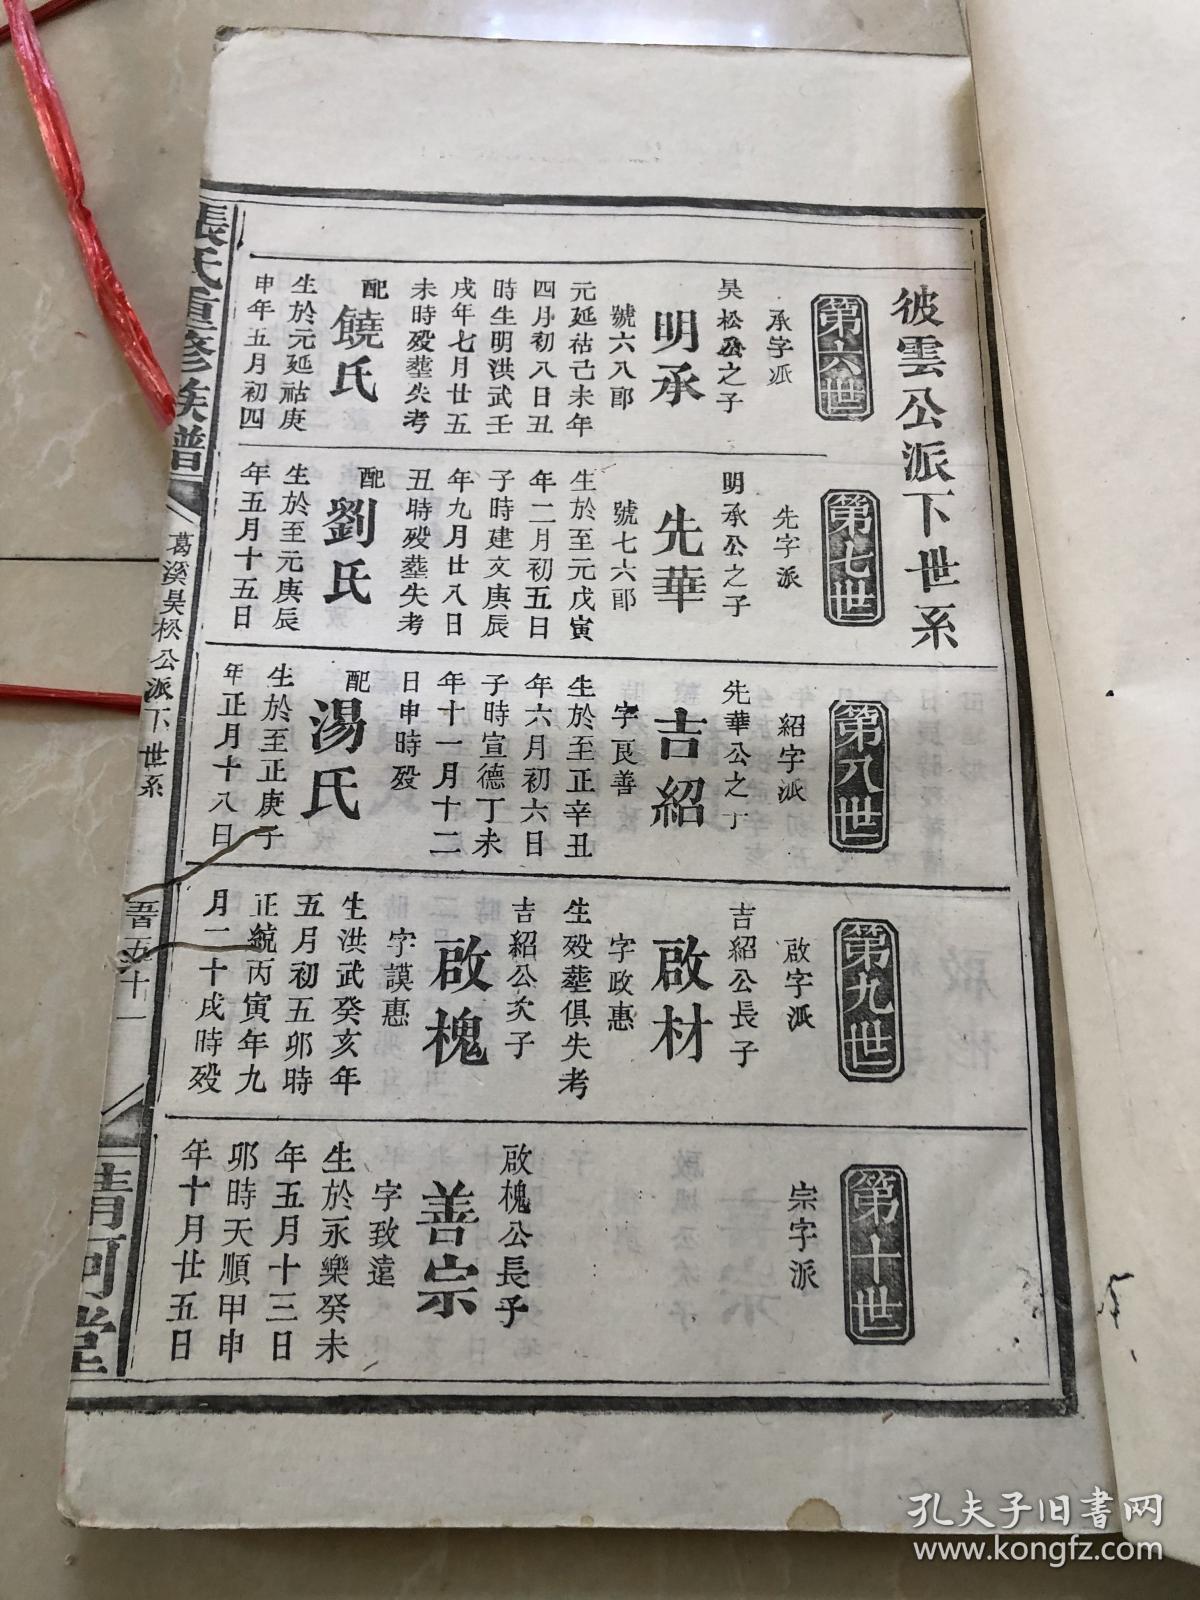 彼雲公派下世系
第六世
承字派
昊松公之子
明承
號六八郎
元延祜己未年
四月初八日丑
時生明洪武壬
戌年七月廿五
未時殁塟失考
配
饒氏
生於元延祜庚
申年五月初四
第七世
先字派
明承公之子
先華
號七六郎
生於至元戊寅
年二月初五日
子時建文庚辰
年九月廿八日
丑時殁塟失考
配
劉氏
生於至元庚辰
年五月十五日
第八世
紹字派
先華公之子
吉紹
字良善
生於至正辛丑
年六月初六日
子時宣德丁未
年十一月十二
日申時殁
配
湯氏
生於至正庚子
年正月十八日
第九世
啟字派
吉紹公長子
啟材
字政惠
生殁塟俱失考
吉紹公次子
啟槐
字謨惠
生洪武癸亥年
五月初五卯時
正統丙寅年九
月二十戌時殁
第十世
宗字派
啟槐公長子
善宗
字致遠
生於永樂癸未
年五月十三日
卯時天順甲申
年十月廿五日
張氏重修族譜
葛溪昊松公派下世系
五十一
清河堂
孔夫子旧书网
www.kongfz.com